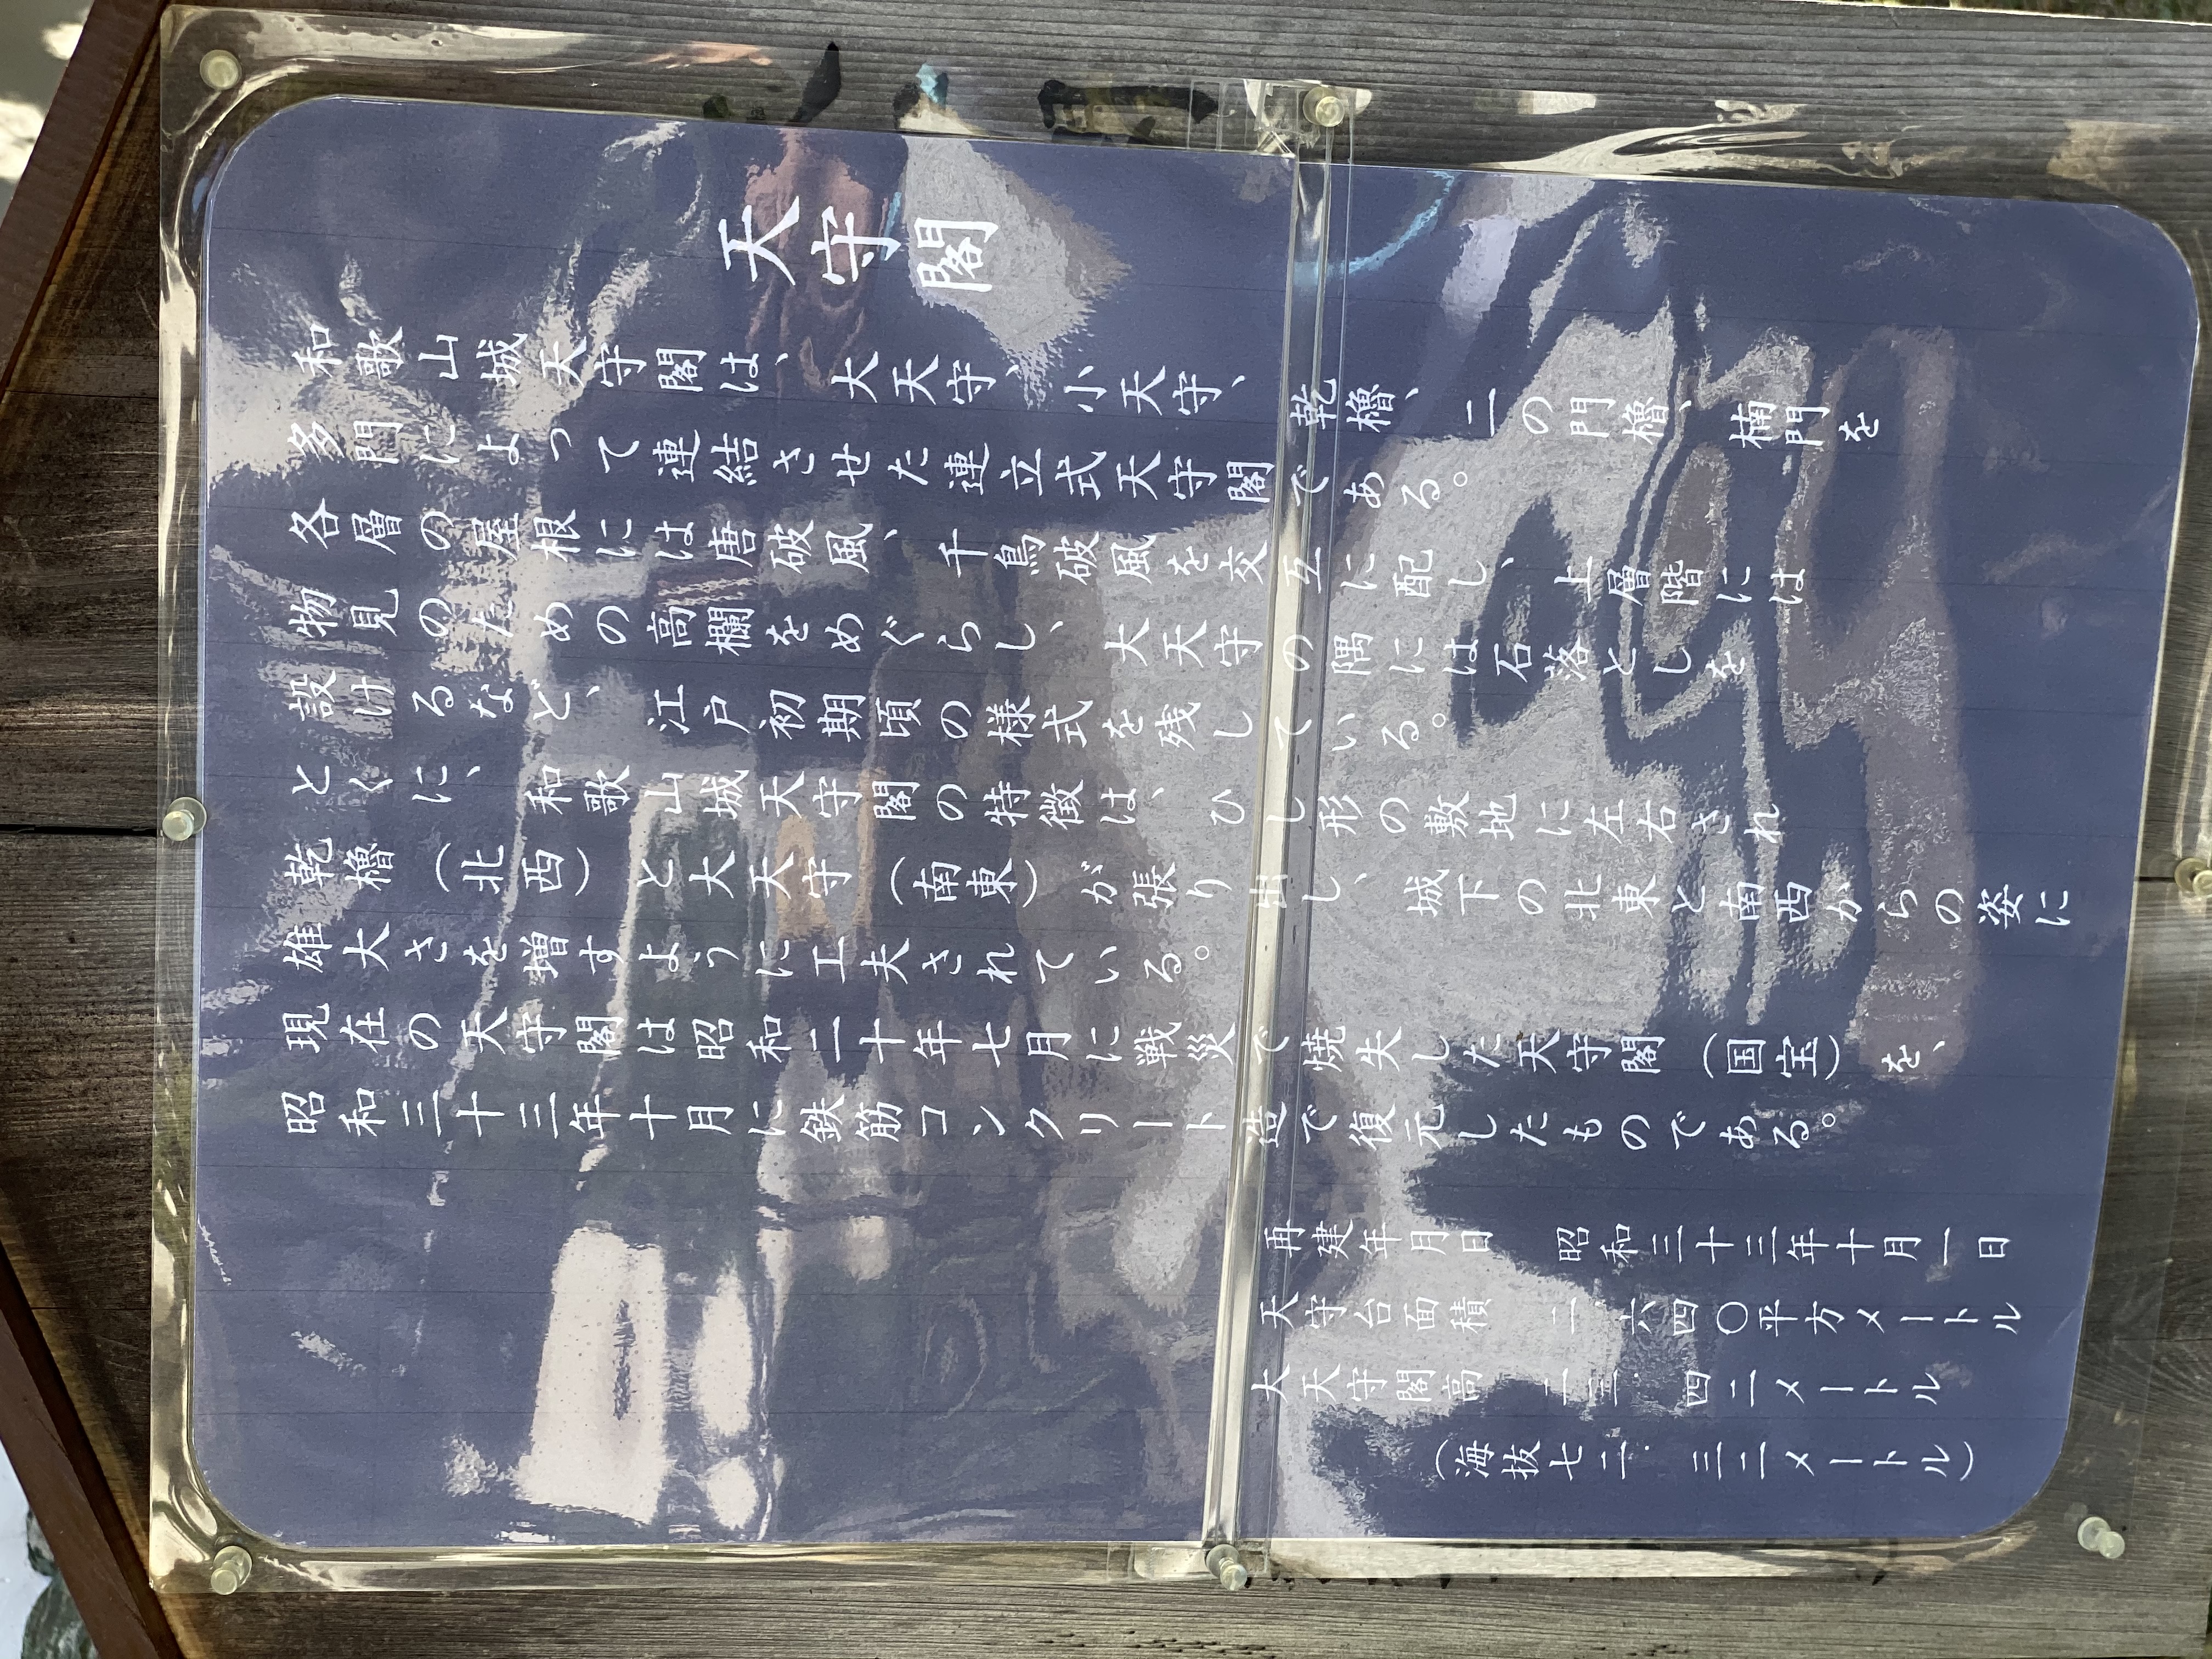 天守閣
和歌山城天守閣は、大天守、小天守、乾櫓、二の門櫓、楠門を
多門によって連結させた連立式天守閣である。
各層の屋根には唐破風、千鳥破風を交互に配し、上層階には
物見のための高欄をめぐらし、大天守の隅には石落としを
設けるなど、江戸初期頃の様式を残している。
とくに、和歌山城天守閣の特徴は、ひし形の敷地に左右され
乾櫓（北西）と大天守（南東）が張り出し、城下の北東と南西からの姿に
雄大さを増すように工夫されている。
現在の天守閣は昭和二十年七月に戦災で焼失した天守閣（国宝）を、
昭和三十三年十月に鉄筋コンクリート造で復元したものである。
再建年月日 昭和三十三年十月一日
天守台面積 二.六四〇平方メートル
大天守閣高 二三.四二メートル
（海抜七二.三二メートル）